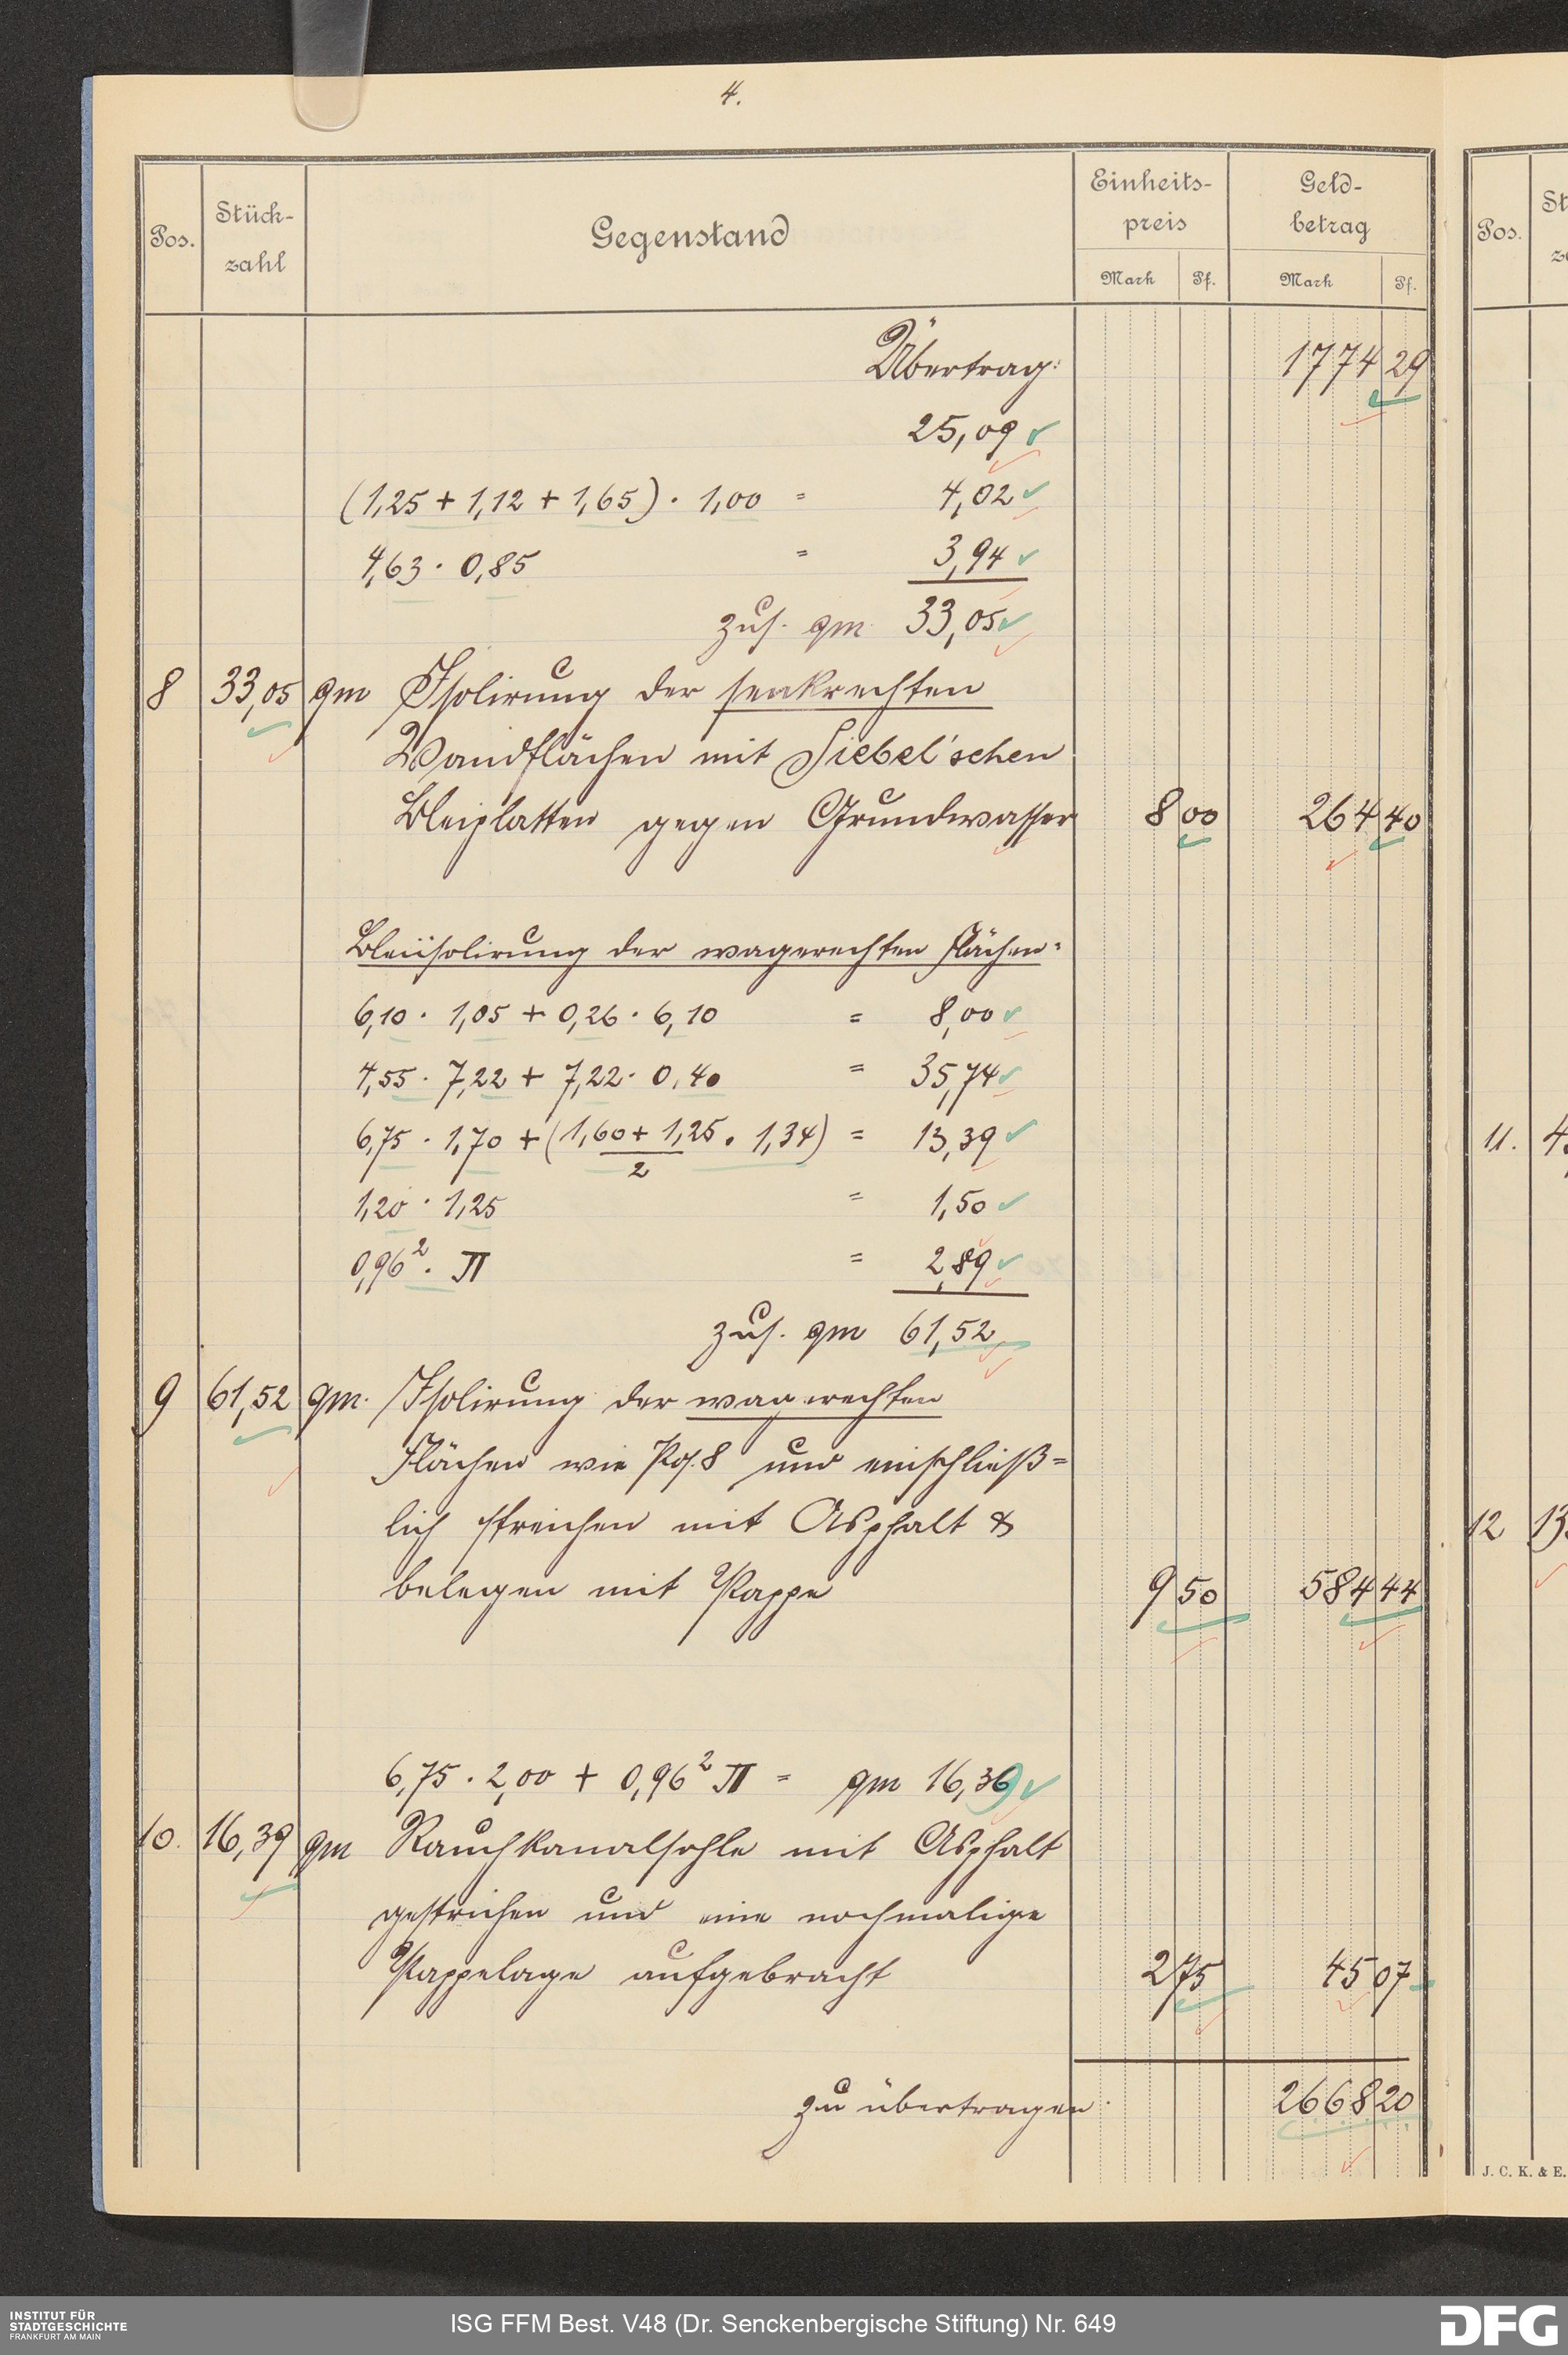 4.
Pos. Stück-zahl Gegenstand Einheits-preis Mark Pf. Geld-betrag Mark Pf.
Übertrag: 1774 29
25,09
(1,25 + 1,12 + 1,65) · 1,00 = 4,02
4,63 · 0,85 = 3,94
zus. qm 33,05
8 33,05 qm Isolirung der senkrechten
Wandflächen mit Siebel'schen
Bleiplatten gegen Grundwasser 8 00 264 40
Bleiisolirung der wagerechten Flächen:
6,10 · 1,05 + 0,26 · 6,10 = 8,00
4,55 · 7,22 + 7,22 · 0,40 = 35,74
6,75 · 1,70 + (1,60 + 1,25 · 1,34) = 13,39
2
1,20 · 1,25 = 1,50
0,96² · π = 2,89
zus. qm 61,52
9 61,52 qm. Isolirung der wagerechten
Flächen wie Pos. 8 und einschließ=
lich streichen mit Asphalt &
belegen mit Pappe 9 50 584 44
6,75 · 2,00 + 0,96² π = qm 16,39
10. 16,39 qm Rauchkanalsohle mit Asphalt
gestrichen und eine nochmalige
Pappelage aufgebracht 2 75 45 07
zu übertragen: 2668 20
Pos.
11.
12
J. C. K. & E.
INSTITUT FÜR
STADTGESCHICHTE
FRANKFURT AM MAIN
ISG FFM Best. V48 (Dr. Senckenbergische Stiftung) Nr. 649
DFG